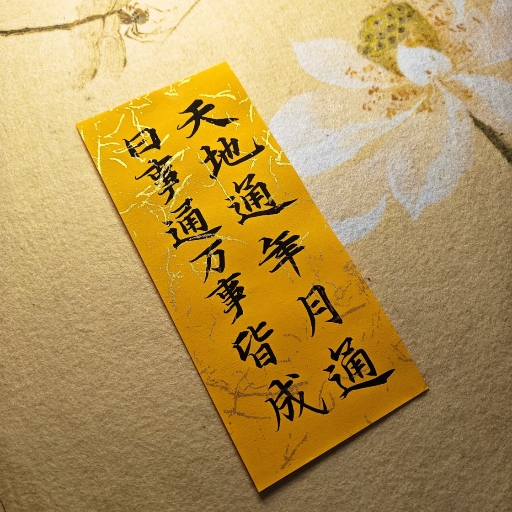 天地通年月通
日事通万事皆成